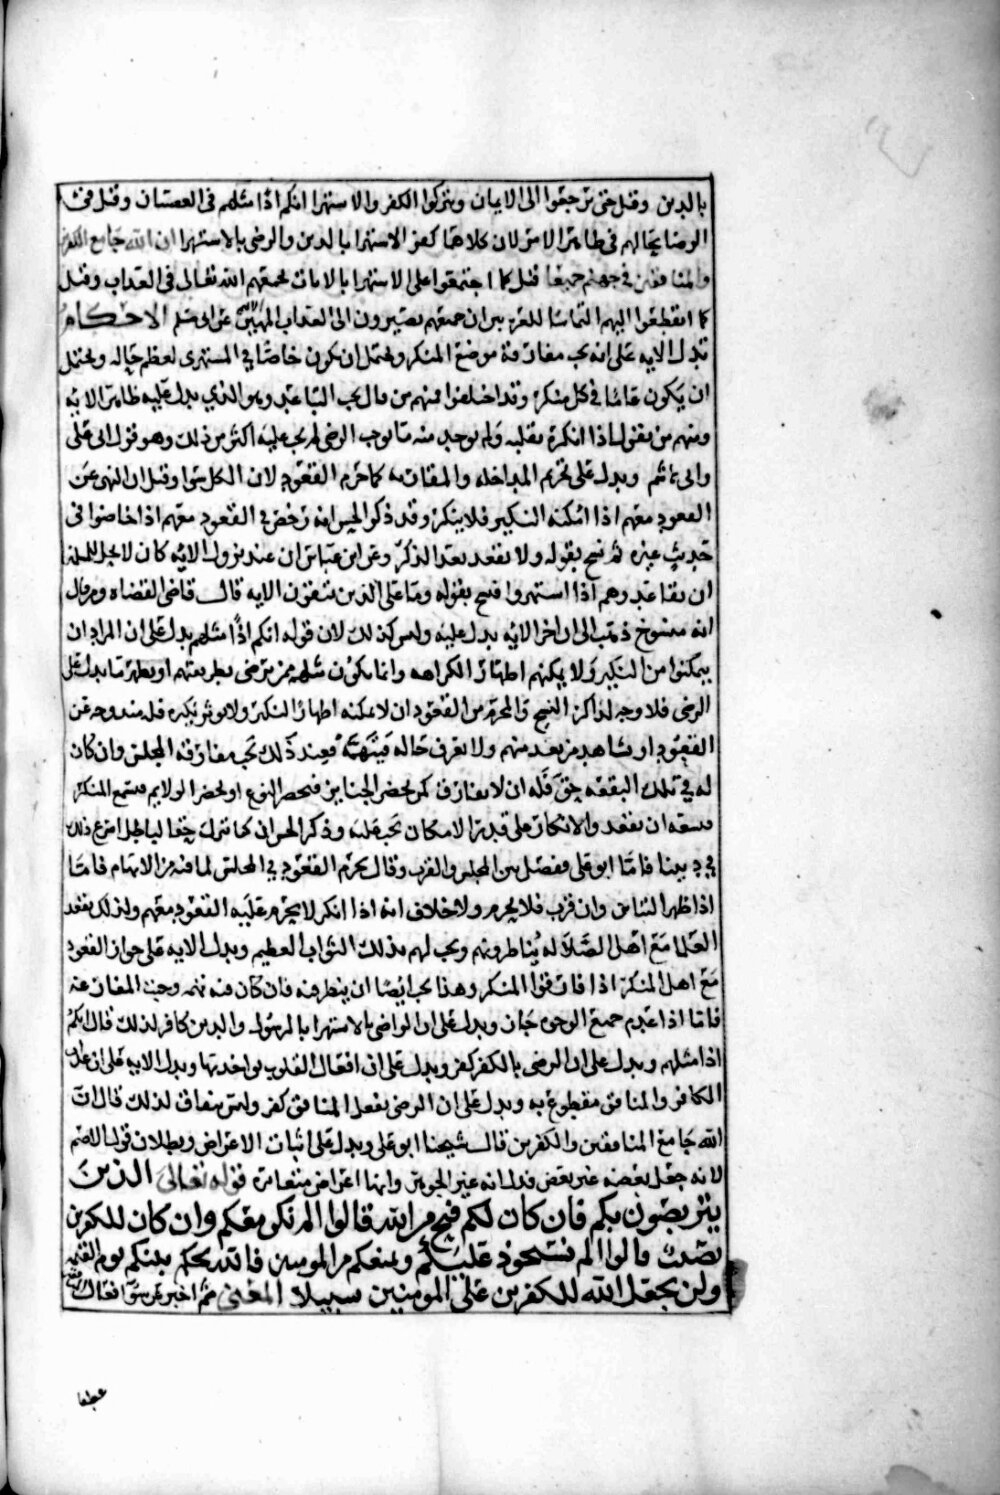 بالدين وقيل حتى ترجعوا الى الايمان وتتركوا الكفر والاستهزا انكم اذا مثلهم في العصيان وقيل في
الرضا بحالهم في ظاهر الامر لان كلاهما كفر الاستهزا بالدين والرضى بالاستهزا ان الله جامع الكفرين
والمنافقين في جهنم جميعا قيل كما اجتمعوا على الاستهزا بالايات يجمعهم الله تعالى في العذاب وقيل
كما انقطعوا اليهم التماسا للعز بين ان جمعهم يصيرون الى العذاب المهين عن ابي مسلم الاحكام
تدل الايه على انه يجب مفارقة موضع المنكر ويحتمل ان يكون خاصا في المستهزي لعظم حاله ويحتمل
ان يكون عاما في كل منكر وقد اختلفوا فمنهم من قال يجب التباعد وهو الذي يدل عليه ظاهر الايه
ومنهم من يقول اذا انكره بقلبه ولم يوجد منه ما يوجب الرضى لم يجب عليه اكثر من ذلك وهو قول ابي علي
وابي هاشم ويدل على تحريم المداخله والمقاربه كما حرم القعود لان الكل سوا وقيل ان النهي عن
القعود معهم اذا امكنه النكير فلا ينكر وقد ذكر الحسن انه رخص في القعود معهم اذا خاضوا في
حديث غيره ثم نسخ بقوله ولا تقعد بعد الذكر وعن ابن عباس ان عند نزول الايه كان لا يحل للمسلم
ان يقاعدوهم اذا استهزوا فنسخ بقوله وما على الذين يتقون الايه قال قاضي القضاه ومن قال
انه منسوخ ذهب الى ان اخر الايه يدل عليه وليس كذلك لان قوله انكم اذا مثلهم يدل على ان المراد ان
يتمكنوا من النكير ولا يمكنهم اظهار الكراهه وانما يكون مثلهم من يرضى بطريقتهم او يظهر ما يدل على
الرضى فلا وجه لذاكر النسخ والمحرم من القعود ان لا يمكنه اظهار النكير ولا يوثر نكيره فله مندوحه عن
القعود او يشاهد من بعد منهم ولا يعرف حاله فيتهمه فعند ذلك يجب مفارقه المجلس وان كان
له في تلك البقعه حق فله ان لا يفارق كمن يحضر الجنايز فيحضر النوح او يحضر الولايم فيسمع المنكر
فيسعه ان يقعد والانكار على قدر الامكان يجب عليه وذكر الحسن ان كلما ترك حقا لباطل اسرع ذلك
في ديننا فاما ابو علي ففصل بين المجلس والقرب وقال يحرم القعود في المجلس لما فيه من الايهام فاما
اذا ظهر التباين وان قرب فلا يحرم ولا خلاف انه اذا انكر لا يحرم عليه القعود معهم ولذلك يقعد
العلما مع اهل الضلاله يناظرونهم ويجب لهم بذلك الثواب العظيم ويدل الايه على جواز القعود
مع اهل المنكر اذا فارقوا المنكر وهذا يجب ايضا ان ينظر فيه فان كان فيه تهمه وجبت المفارقه
فاما اذا عدم جميع الوجوه جاز ويدل على ان الراضي بالاستهزا بالرسول والدين كافر لذلك قال انكم
اذا مثلهم ويدل على ان الرضى بالكفر كفر ويدل على ان افعال القلوب يواخذ بها ويدل الايه على ان عذاب
الكافر والمنافق مقطوع به ويدل على ان الرضى بفعل المنافق كفر وليس بنفاق لذلك قال ان
الله جامع المنافقين والكفرين قال شيخنا ابو علي ويدل على اثبات الاعراض وبطلان قول الاصم
لانه جعل بعضه غير بعض فدل انه غير الجوهر وانها اعراض متغايره قوله تعالى الذين
يتربصون بكم فان كان لكم فتح من الله قالوا الم نكن معكم وان كان للكفرين
نصيب قالوا الم نستحوذ عليكم ونمنعكم من المومنين فالله يحكم بينكم يوم القيمه
ولن يجعل الله للكفرين على المومنين سبيلا المعنى ثم اخبر عن سوء افعال
عطفا